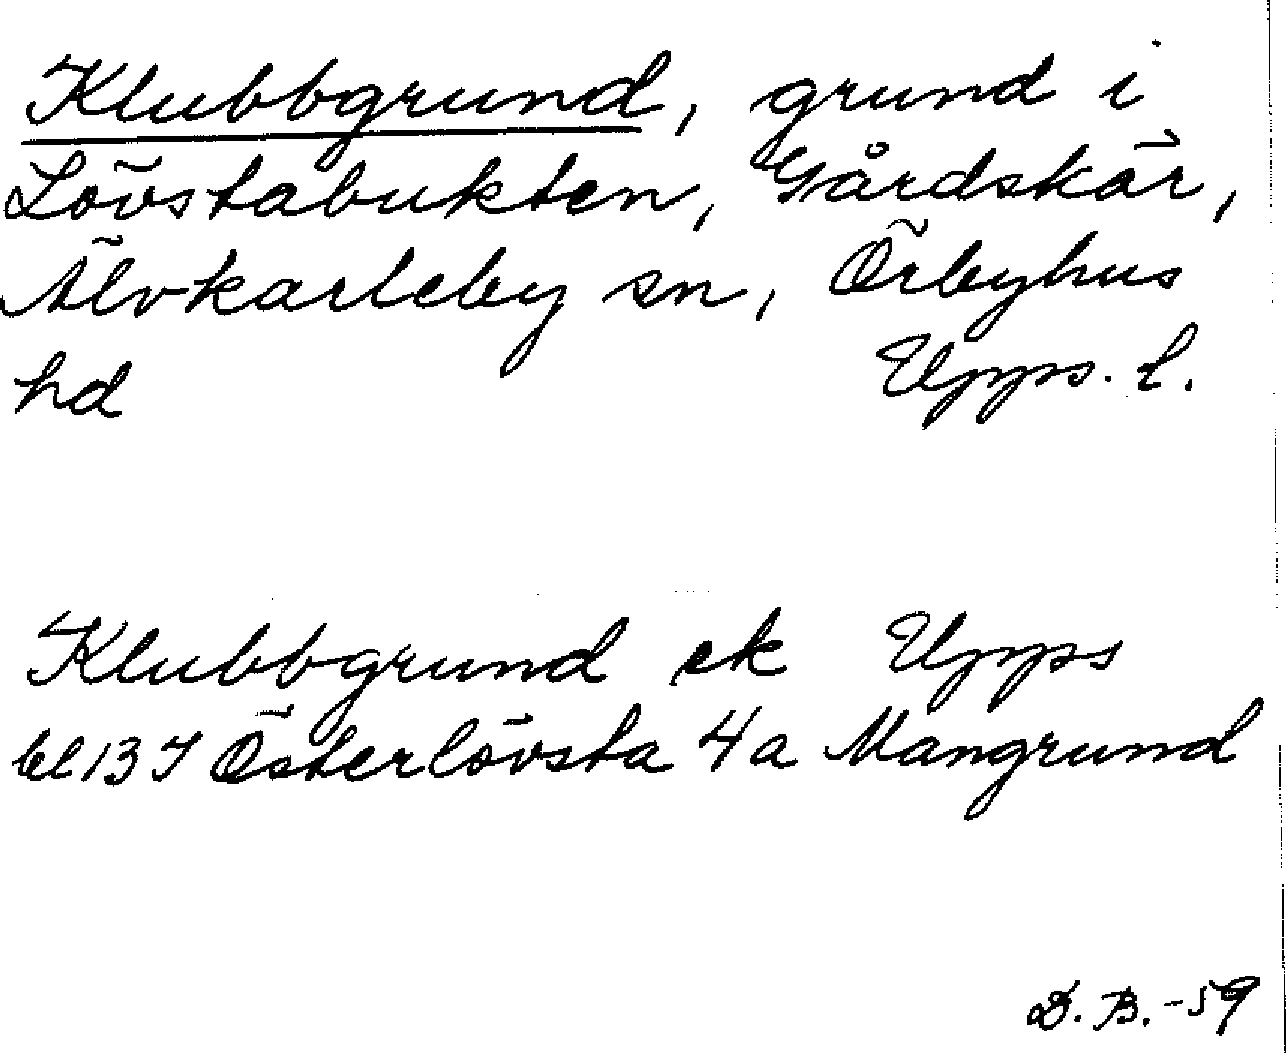 Klubbgrund, grund i
Lövstabukten, Gårdskär,
Älvkarleby sn, Örbyhus
hd Upps. l.
Klubbgrund ek Upps
bl 13 I Österlövsta 4a Mangrund
D. B. -59